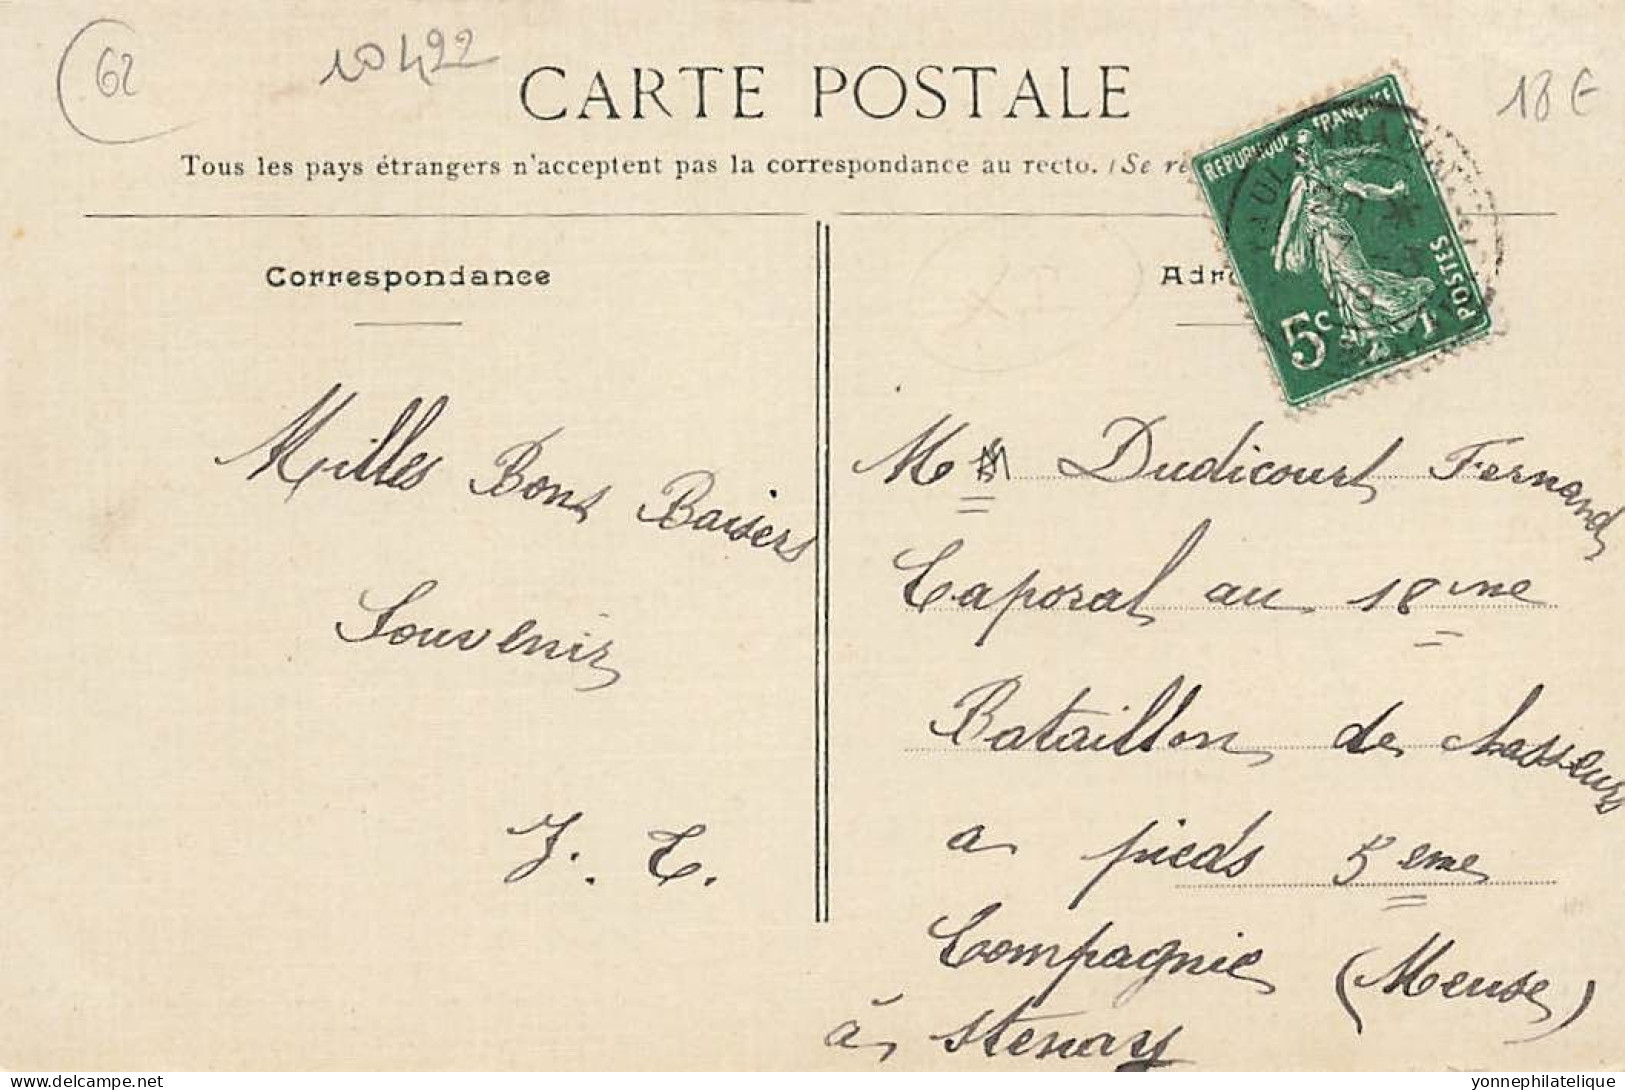 62
10492
18 €
CARTE POSTALE
Tous les pays étrangers n'acceptent pas la correspondance au recto. (Se re
REPUBLIQUE FRANÇAISE
POSTES
5c
Correspondance
Adr
Milles Bons Baisers
Souvenir
J. C.
Mr Dudicourt Fernand
Caporal au 18me
Bataillon de chasseurs
a pieds 5eme
Compagnie (Meuse)
à Stenay
www.delcampe.net
yonnephilatelique